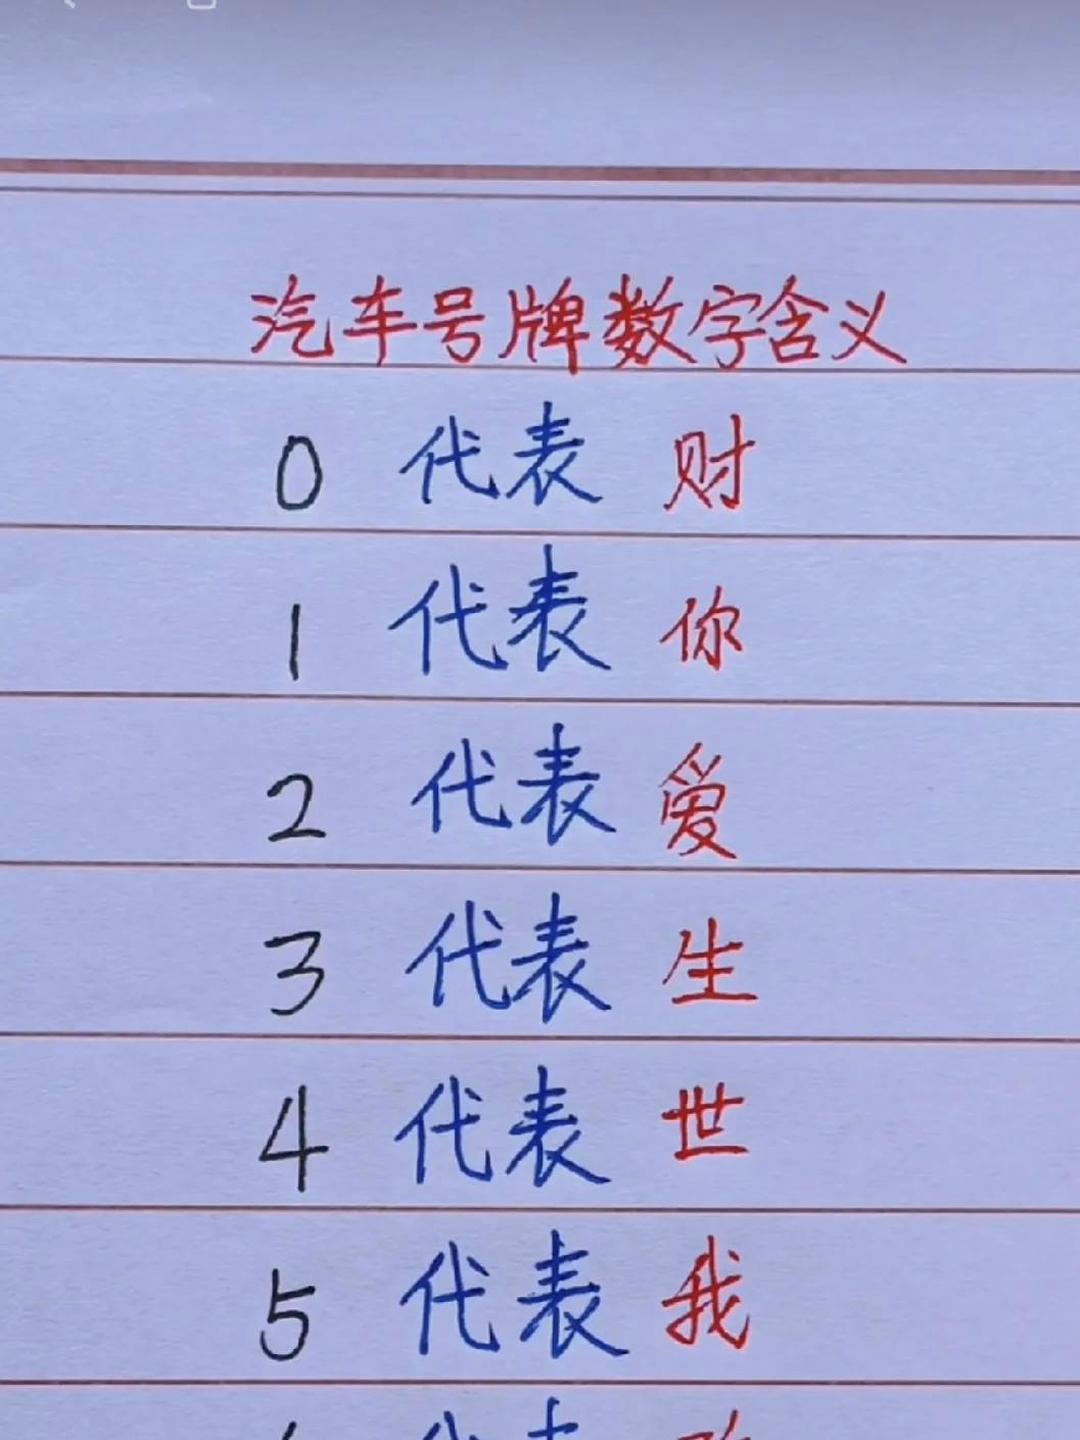 汽车号牌数字含义
0 代表 财
1 代表 你
2 代表 爱
3 代表 生
4 代表 世
5 代表 我